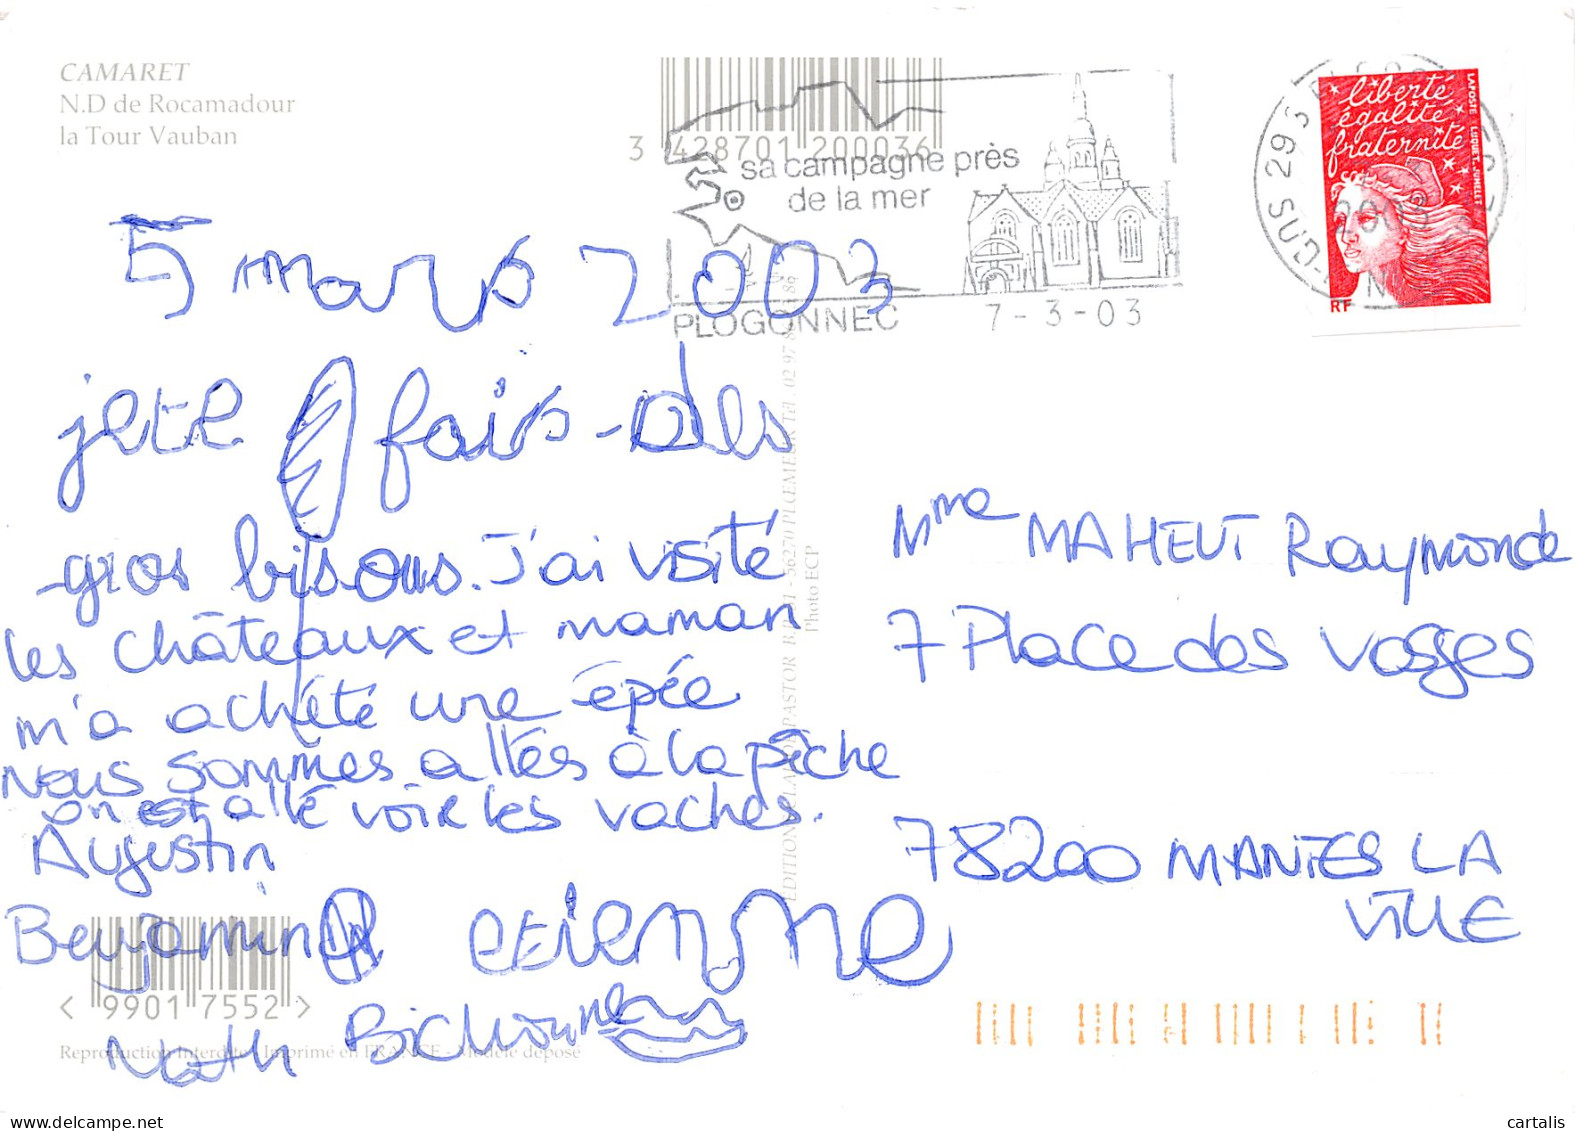 CAMARET
N.D de Rocamadour
la Tour Vauban
3 428701 200036
sa campagne près
de la mer
PLOGONNEC
7-3-03
liberté
égalité
fraternité
LA POSTE LUQUET.JUMELET
RF
5 mars 2003
je te fais des
gros bisous. J'ai visité
les châteaux et maman
m'a achété une épée
Nous sommes allés à la pêche
on est allé voir les vaches.
Augustin
Benjamin etienne
Nath Bichoune
Mme MAHEUT Raymonde
7 Place des vosges
78200 MANTES LA
VILLE
Photo ECP
< 9901 7552 >
Reproduction Interdite - Imprimé en FRANCE - Modèle déposé
cartalis